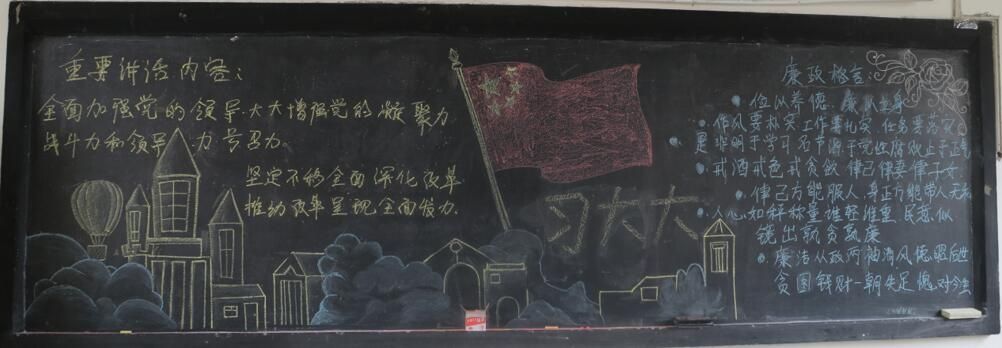 重要讲话内容:
全面加强党的领导.大大增强党的凝聚力
战斗力和领导力号召力.
坚定不移全面深化改革
推动改革呈现全面发力.
习大大
廉政格言:
位从养德.廉从立身
作风要朴实工作要扎实.任务要落实
是非明于学习名节源于党性腐败止于正气
戒酒戒色戒贪欲律己律妻律子女
律己方能服人.身正方能带人无私
人心如秤称量谁轻谁重.民意似
镜出孰贪孰廉
廉洁从政两袖清风德昭后世
贪图钱财一朝失足愧对今生